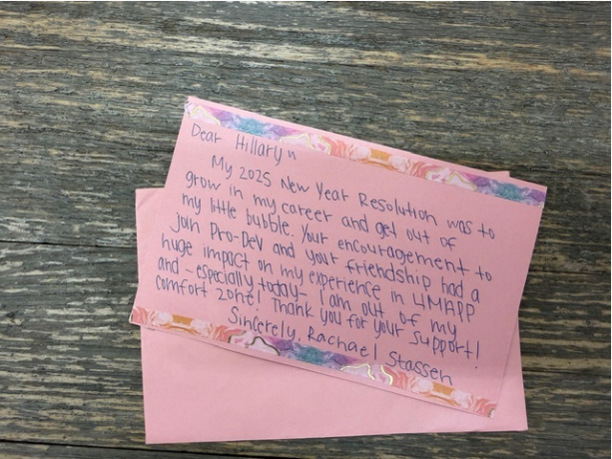 Dear Hillary"
My 2025 New Year Resolution was to
grow in my career and get out of
my little bubble. Your encouragement to
join Pro-Dev and your friendship had a
huge impact on my experience in 4MAPP
and - especially today - I am out of my
comfort zone! Thank you for your support!
Sincerely, Rachael Stassen